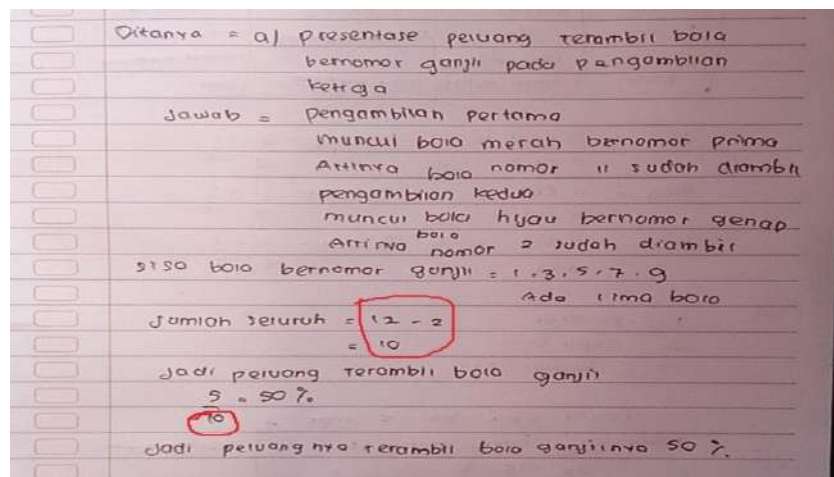 Ditanya = a) presentase peluang terambil bola
bernomor ganjil pada pengambilan
ketiga
Jawab = pengambilan pertama
muncul bola merah bernomor prima
Artinya bola nomor 11 sudah diambil
pengambilan kedua
muncul bola hijau bernomor genap
Artinya bola nomor 2 sudah diambil
sisa bola bernomor ganjil = 1.3.5.7.9
Ada lima bola
Jumlah seluruh = 12 - 2
= 10
Jadi peluang terambil bola ganjil
5/10 = 50 %.
Jadi peluang nya terambil bola ganjilnya 50 %.